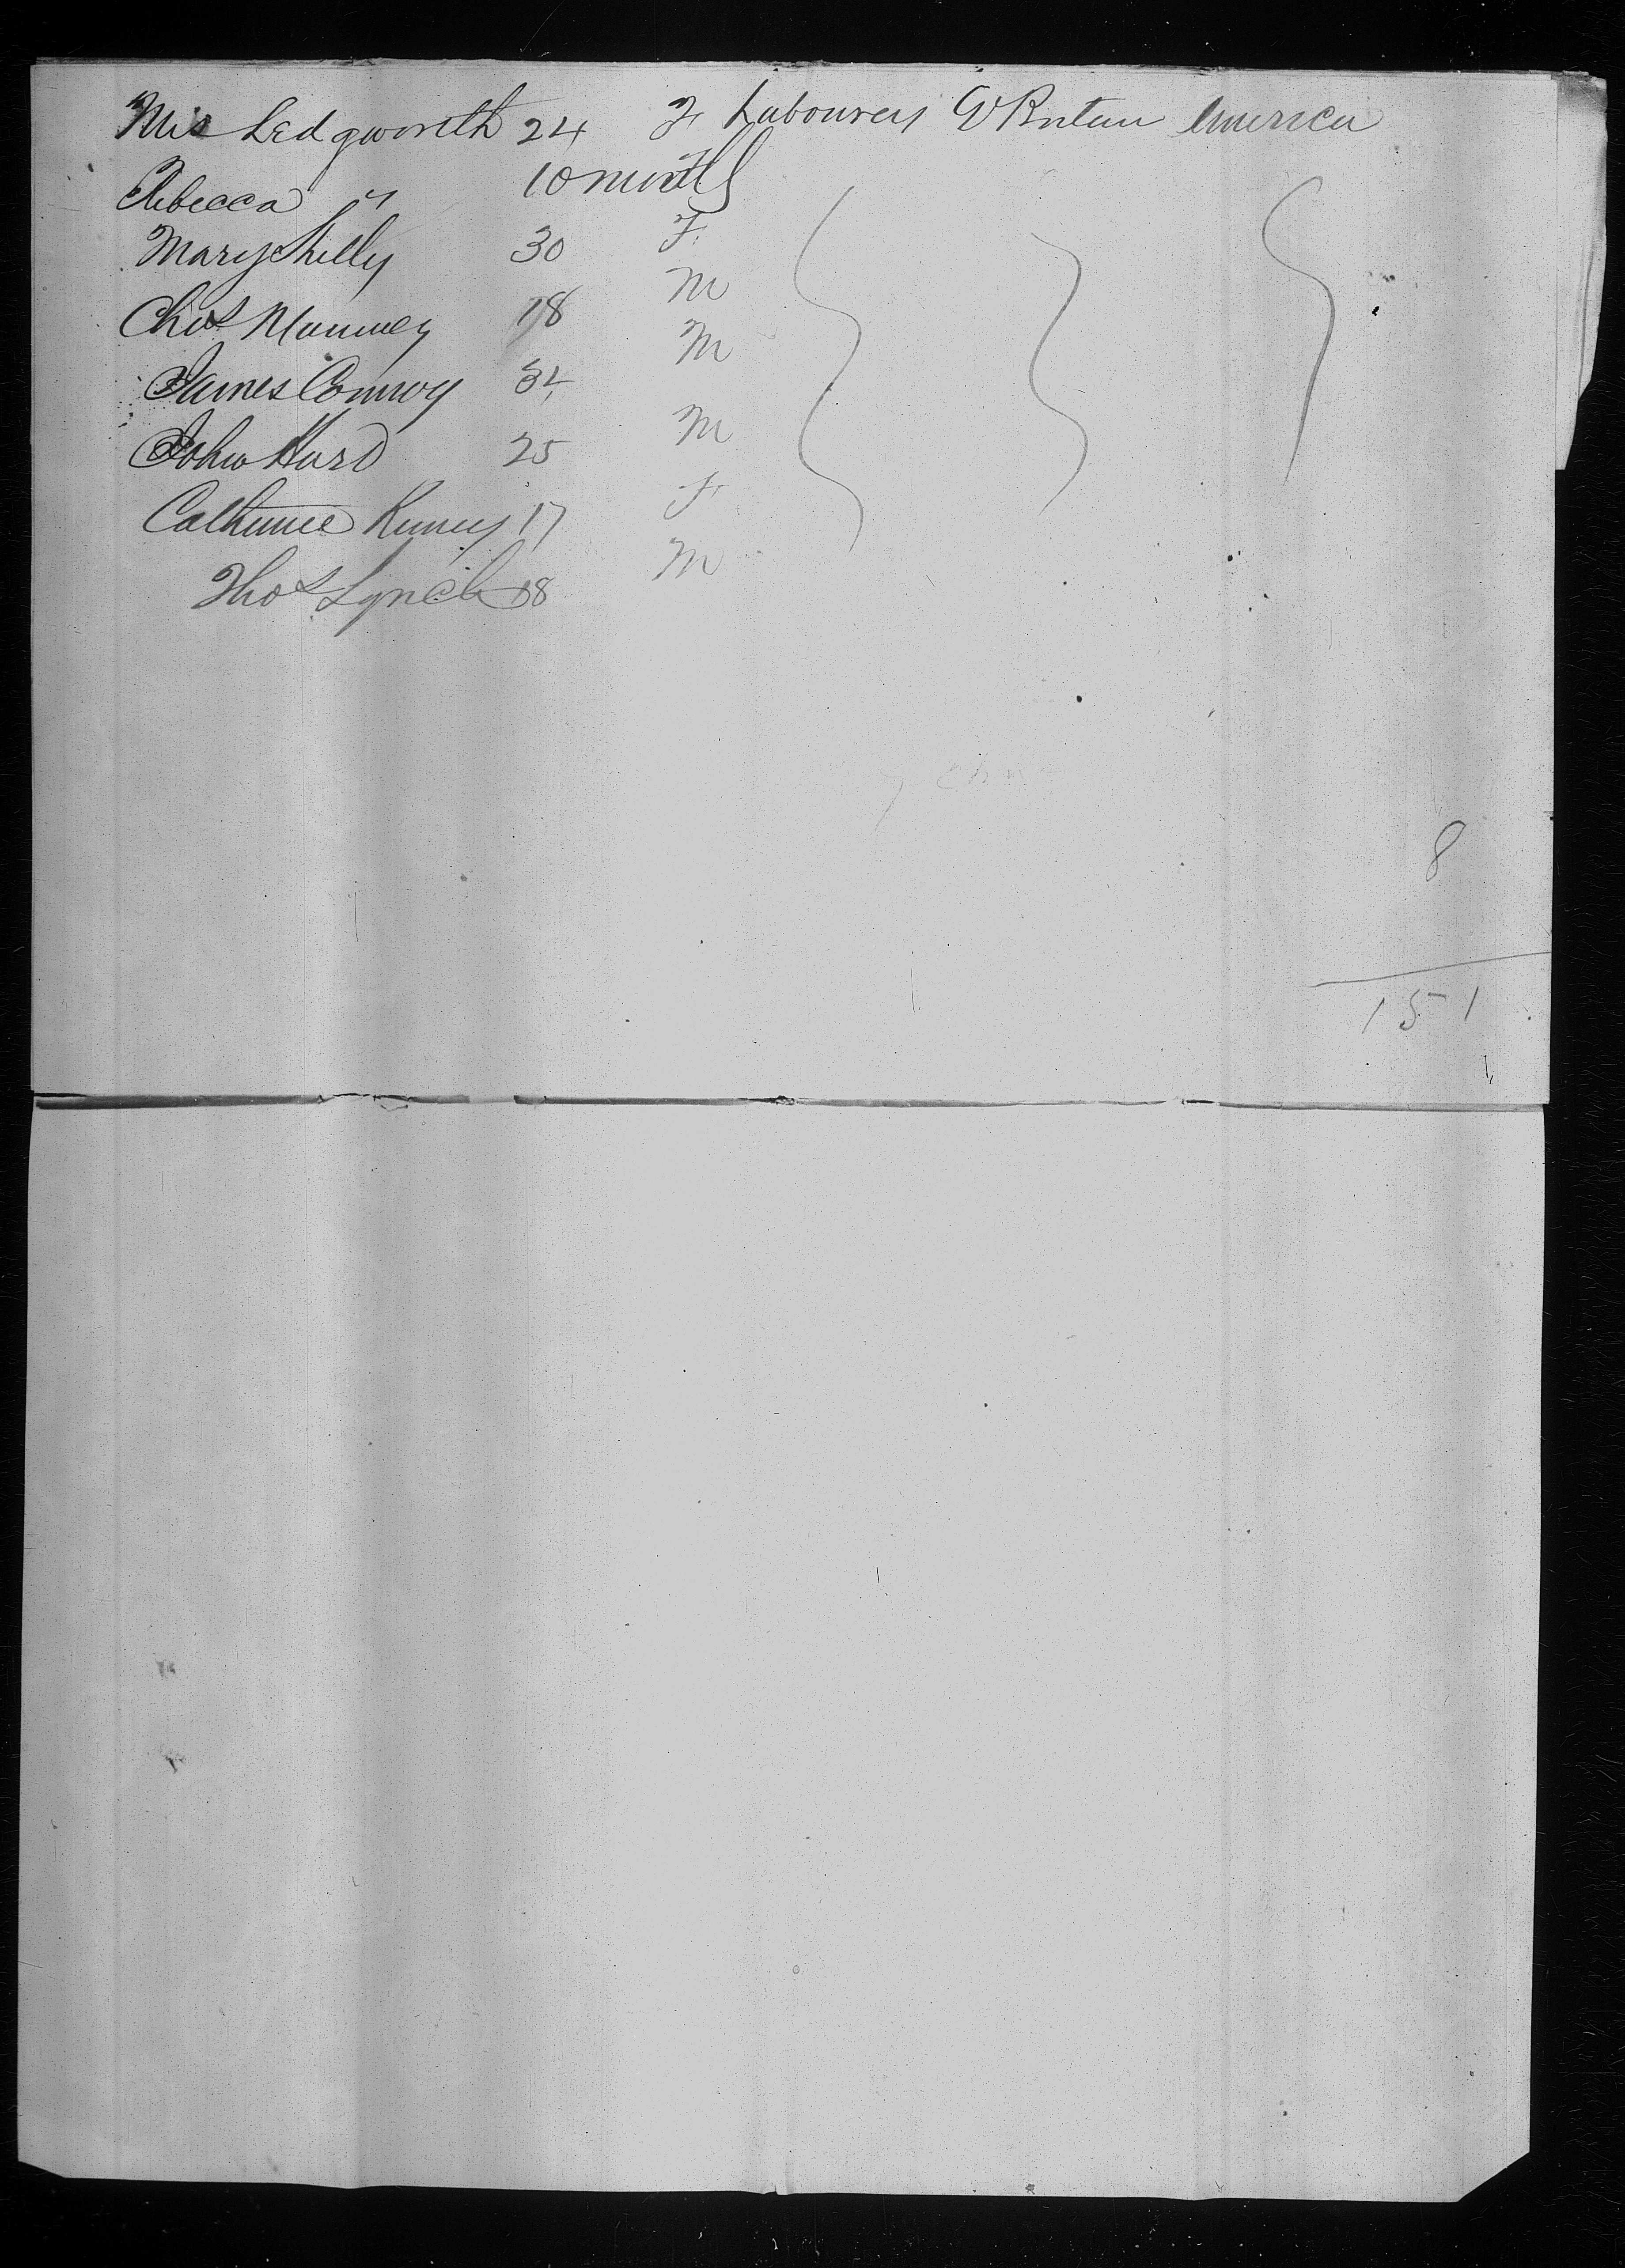 Mrs Ledgworth 24 F Labourers Gt Britain America
Rebecca " 10 months F
Mary Shelly 30 F
Chas 18 M
James Conroy 34 M
John Hard 25 M
Catherine 17 F
Thos Lynch 18 M
8
151